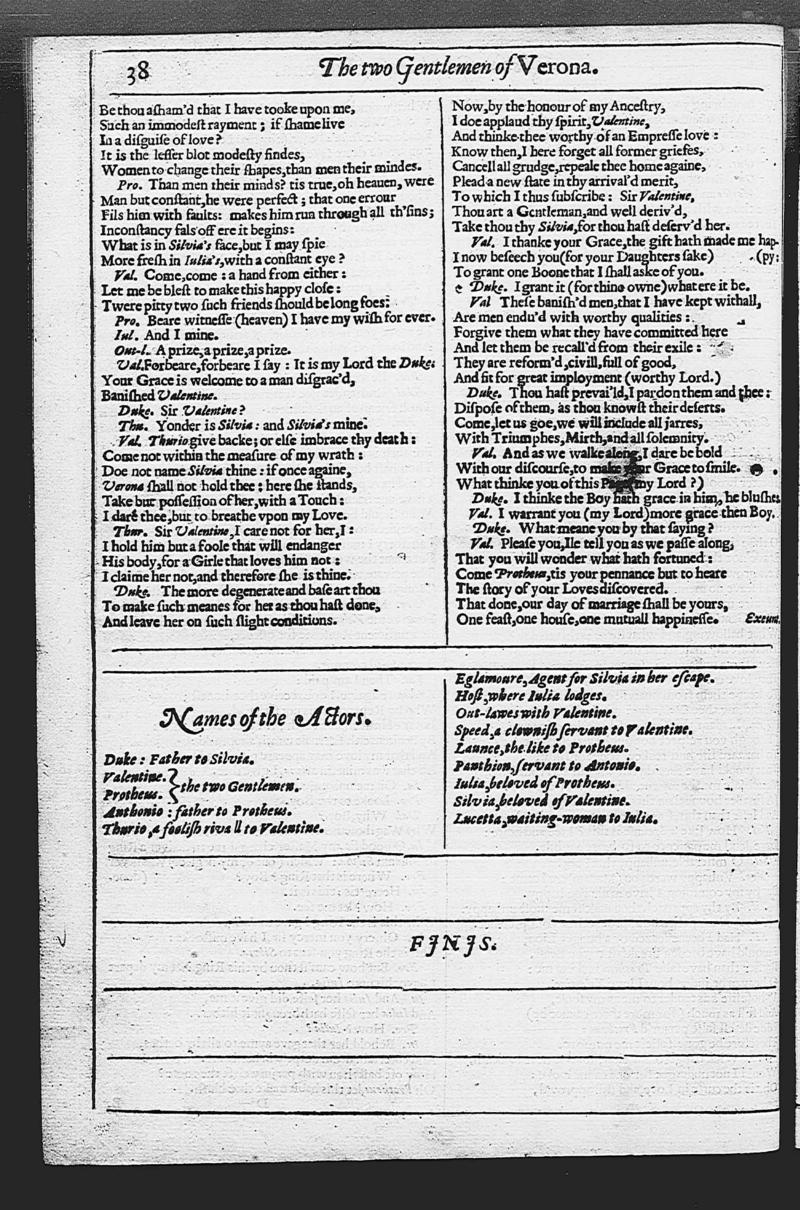 38
The two Gentlemen of Verona.
Be thou aſham'd that I have tooke upon me,
Such an immodeſt rayment; if ſhame live
In a diſguiſe of love?
It is the leſſer blot modeſty findes,
Women to change their ſhapes, than men their mindes.
Pro. Than men their minds? tis true, oh heaven, were
Man but conſtant, he were perfect; that one errour
Fils him with faults: makes him run through all th'ſins;
Inconſtancy fals off ere it begins:
What is in Silvia's face, but I may ſpie
More freſh in Iulia's, with a conſtant eye?
Val. Come, come: a hand from either:
Let me be bleſt to make this happy cloſe:
Twere pitty two ſuch friends ſhould be long foes:
Pro. Beare witneſſe (heaven) I have my wiſh for ever.
Iul. And I mine.
Out-l. A prize, a prize, a prize.
Val. Forbeare, forbeare I ſay: It is my Lord the Duke:
Your Grace is welcome to a man diſgrac'd,
Baniſhed Valentine.
Duke. Sir Valentine?
Thu. Yonder is Silvia: and Silvia's mine.
Val. Thurio give backe; or elſe imbrace thy death:
Come not within the meaſure of my wrath:
Doe not name Silvia thine: if once againe,
Verona ſhall not hold thee: here ſhe ſtands,
Take but poſſeſſion of her, with a Touch:
I dare thee, but to breathe vpon my Love.
Thur. Sir Valentine, I care not for her, I:
I hold him but a foole that will endanger
His body, for a Girle that loves him not:
I claime her not, and therefore ſhe is thine.
Duke. The more degenerate and baſe art thou
To make ſuch meanes for her as thou haſt done,
And leave her on ſuch ſlight conditions.
Now, by the honour of my Anceſtry,
I doe applaud thy ſpirit, Valentine,
And thinke thee worthy of an Empreſſe love:
Know then, I here forget all former griefes,
Cancell all grudge, repeale thee home againe,
Plead a new ſtate in thy arrival'd merit,
To which I thus ſubſcribe: Sir Valentine,
Thou art a Gentleman, and well deriv'd,
Take thou thy Silvia, for thou haſt deſerv'd her.
Val. I thanke your Grace, the gift hath made me hap-
I now beſeech you (for your Daughters ſake) (py:
To grant one Boone that I ſhall aske of you.
Duke. I grant it (for thine owne) what ere it be.
Val Theſe baniſh'd men, that I have kept withall,
Are men endu'd with worthy qualities:
Forgive them what they have committed here
And let them be recall'd from their exile:
They are reform'd, civill, full of good,
And fit for great imployment (worthy Lord.)
Duke. Thou haſt prevai'ld, I pardon them and thee:
Diſpoſe of them, as thou knowſt their deſerts.
Come, let us goe, we will include all jarres,
With Triumphes, Mirth, and all ſolemnity.
Val. And as we walke along, I dare be bold
With our diſcourſe, to make your Grace to ſmile.
What thinke you of this Page (my Lord?)
Duke. I think the Boy hath grace in him, he bluſhes
Val. I warrant you (my Lord) more grace then Boy.
Duke. What meane you by that ſaying?
Val. Pleaſe you, Ile tell you as we paſſe along,
That you will wonder what hath fortuned:
Come Protheus, tis your pennance but to heare
The ſtory of your Loves diſcovered.
That done, our day of marriage ſhall be yours,
One feaſt, one houſe, one mutuall happineſſe. Exeunt.
Names of the Actors.
Duke: Father to Silvia.
Valentine.
Protheus. } the two Gentlemen.
Anthonio: father to Protheus.
Thurio, a fooliſh rivall to Valentine.
Eglamoure, Agent for Silvia in her eſcape.
Hoſt, where Iulia lodges.
Out-lawes with Valentine.
Speed, a clowniſh ſervant to Valentine.
Launce, the like to Protheus.
Panthion, ſervant to Antonio.
Iulia, beloved of Protheus.
Silvia, beloved of Valentine.
Lucetta, waiting-woman to Iulia.
FINIS.